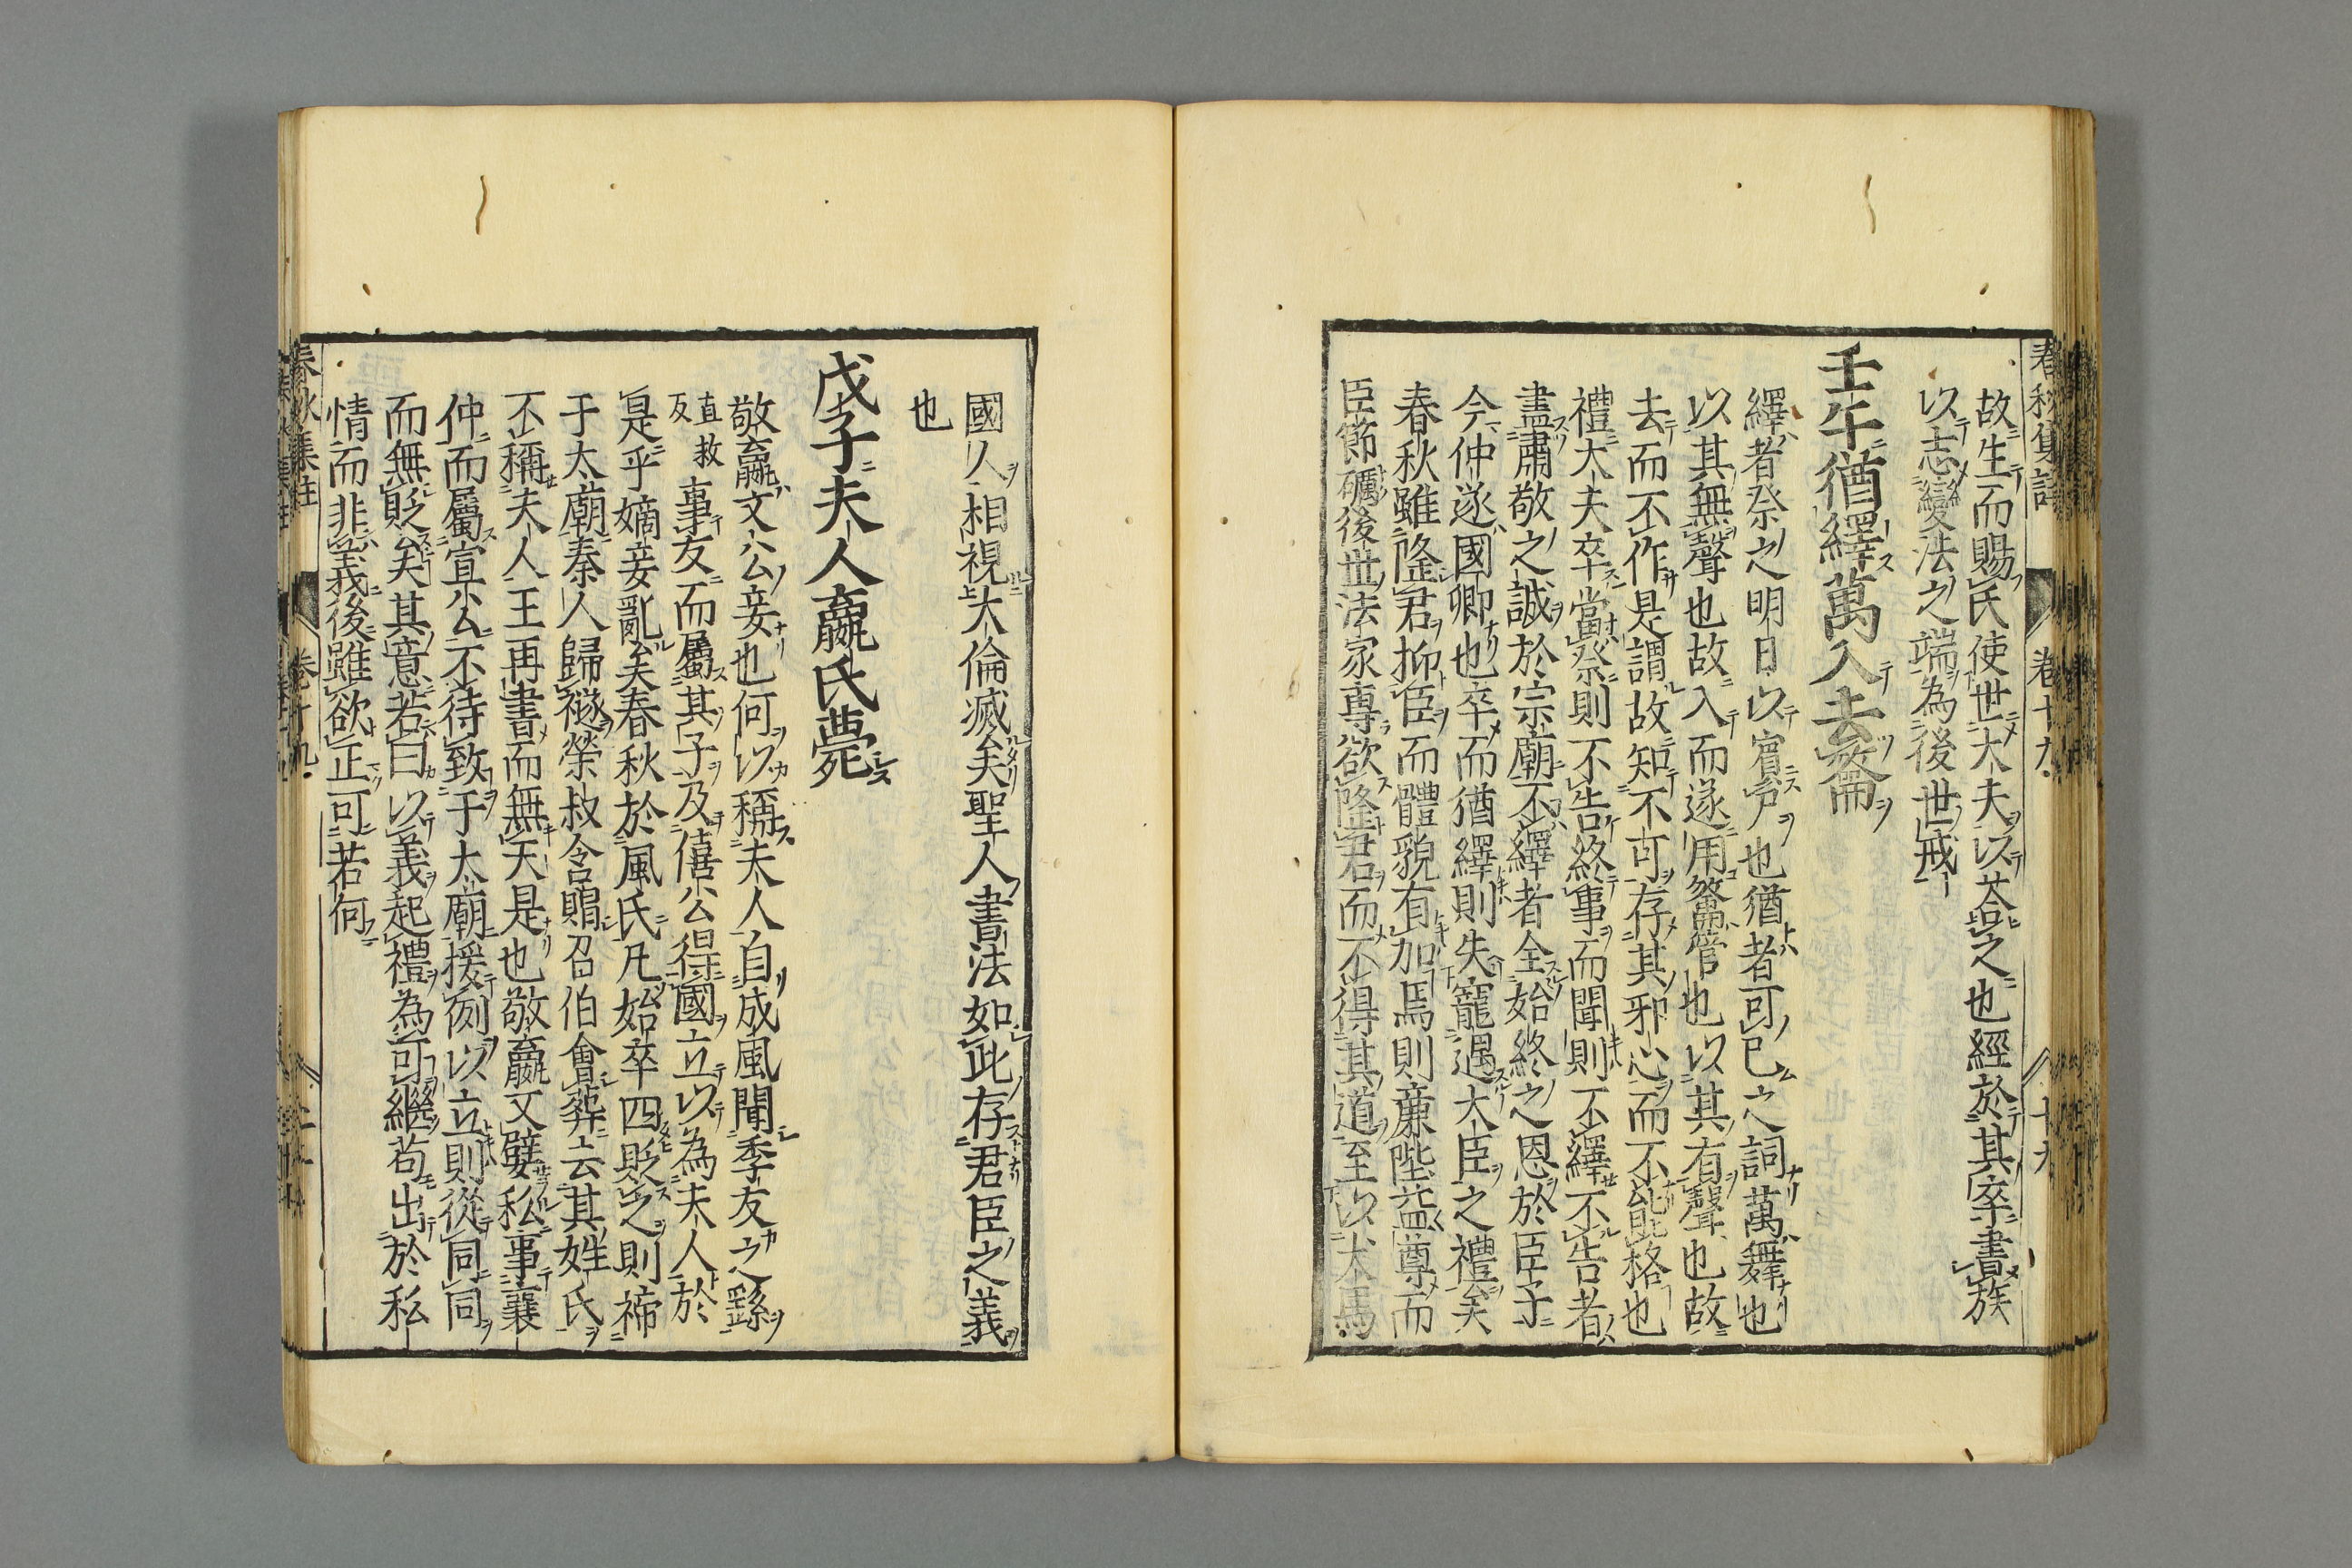 故生而賜氏使世大夫以荅之也經於其卒書族
以志變法之端為後世戒
壬午猶繹萬入去籥
繹者祭之明日以賓尸也猶者可已之詞萬舞也
以其無聲也故入而遂用籥管也以其有聲也故
去而不作是謂故知不可存其邪心而不能格也
禮大夫卒當祭則不告終事而聞則不繹不告者
盡肅敬之誠於宗廟不繹者全始終之恩於臣子
今仲遂國卿也卒而猶繹則失寵遇大臣之禮矣
春秋雖隆君抑臣而體貌有加焉則廉陛益尊而
臣節礪後世法家專欲隆君而不得其道至以犬馬
國人相視大倫滅矣聖人書法如此存君臣之義
也
戊子夫人嬴氏薨
敬嬴文公妾也何以稱夫人自成風聞季友之繇
直救反事友而屬其子及僖公得國立以為夫人於
是乎嫡妾亂矣春秋於風氏凡始卒四貶之則禘
于太廟秦人歸襚榮叔含賵召伯會葬去其姓氏
不稱夫人王再書而無天是也敬嬴又嬖私事襄
仲而屬宣公不待致于太廟援例以立則從同同
而無貶矣其意若曰以義起禮為可繼苟出於私
情而非義後雖欲正可若何
春秋集註
卷十九
十九
春秋集註
卷十九